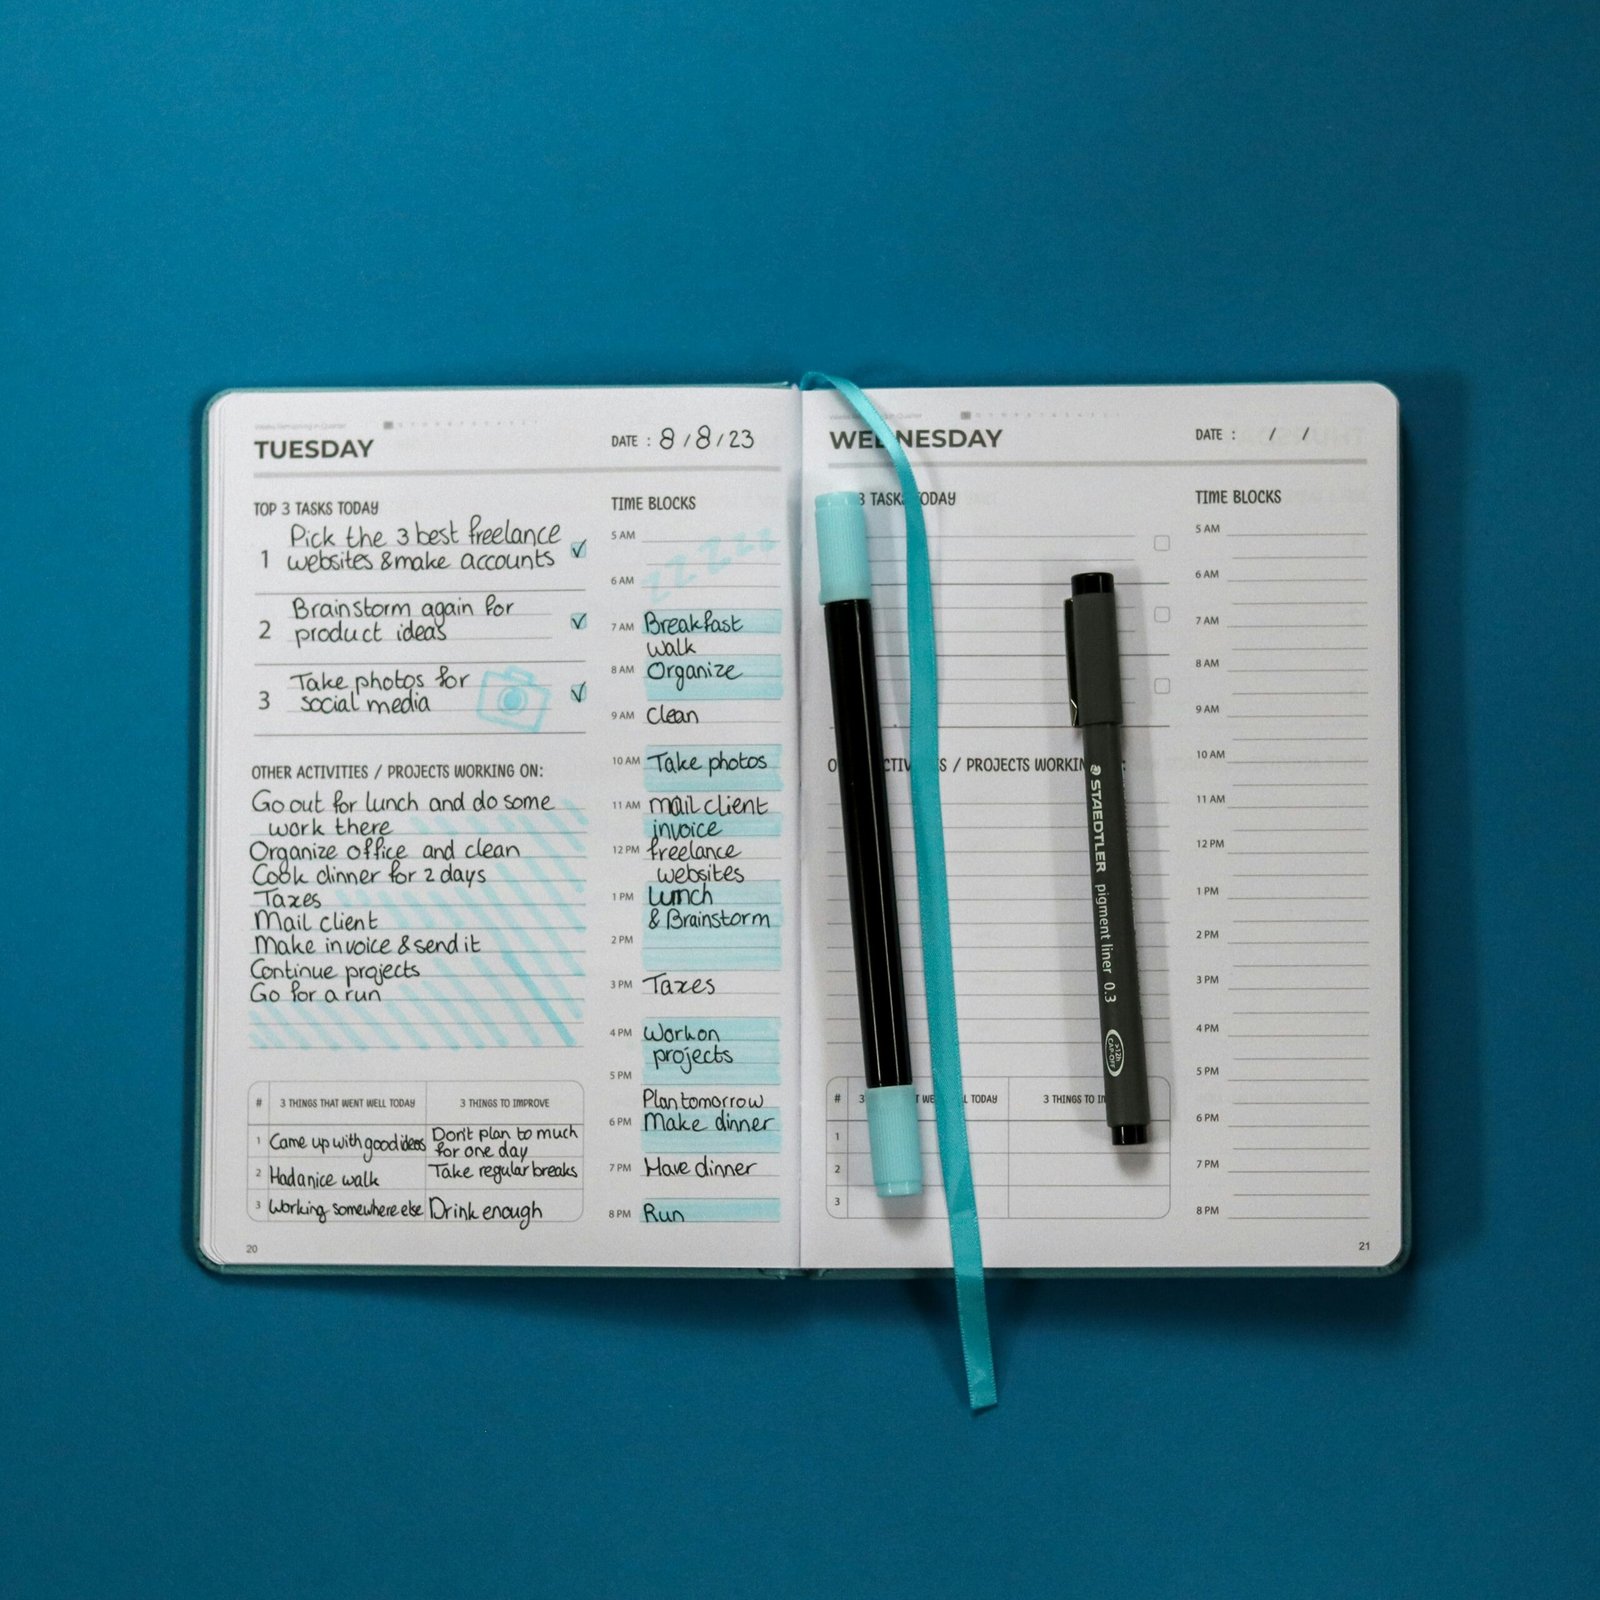 Weeks Remaining in Quarter
TUESDAY
DATE : 8 / 8 / 23
TOP 3 TASKS TODAY
1 Pick the 3 best freelance
websites & make accounts
2 Brainstorm again for
product ideas
3 Take photos for
social media
OTHER ACTIVITIES / PROJECTS WORKING ON:
Go out for lunch and do some
work there
Organize office and clean
Cook dinner for 2 days
Taxes
Mail client
Make invoice & send it
Continue projects
Go for a run
# 3 THINGS THAT WENT WELL TODAY 3 THINGS TO IMPROVE
1 Came up with good ideas Don't plan to much
for one day
2 Had a nice walk Take regular breaks
3 Working somewhere else Drink enough
20
TIME BLOCKS
5 AM zzzzz
6 AM
7 AM Breakfast
walk
8 AM Organize
9 AM Clean
10 AM Take photos
11 AM mail client
invoice
12 PM freelance
websites
1 PM Lunch
& Brainstorm
2 PM
3 PM Taxes
4 PM Work on
projects
5 PM
Plan tomorrow
6 PM Make dinner
7 PM Have dinner
8 PM Run
WEDNESDAY
DATE : / /
3 TASKS TODAY
/ PROJECTS
# 3 WELL TODAY 3 THINGS TO
1
2
3
TIME BLOCKS
5 AM
6 AM
7 AM
8 AM
9 AM
10 AM
11 AM
12 PM
1 PM
2 PM
3 PM
4 PM
5 PM
6 PM
7 PM
8 PM
21
STAEDTLER pigment liner 0.3
>12h
CAP-OFF